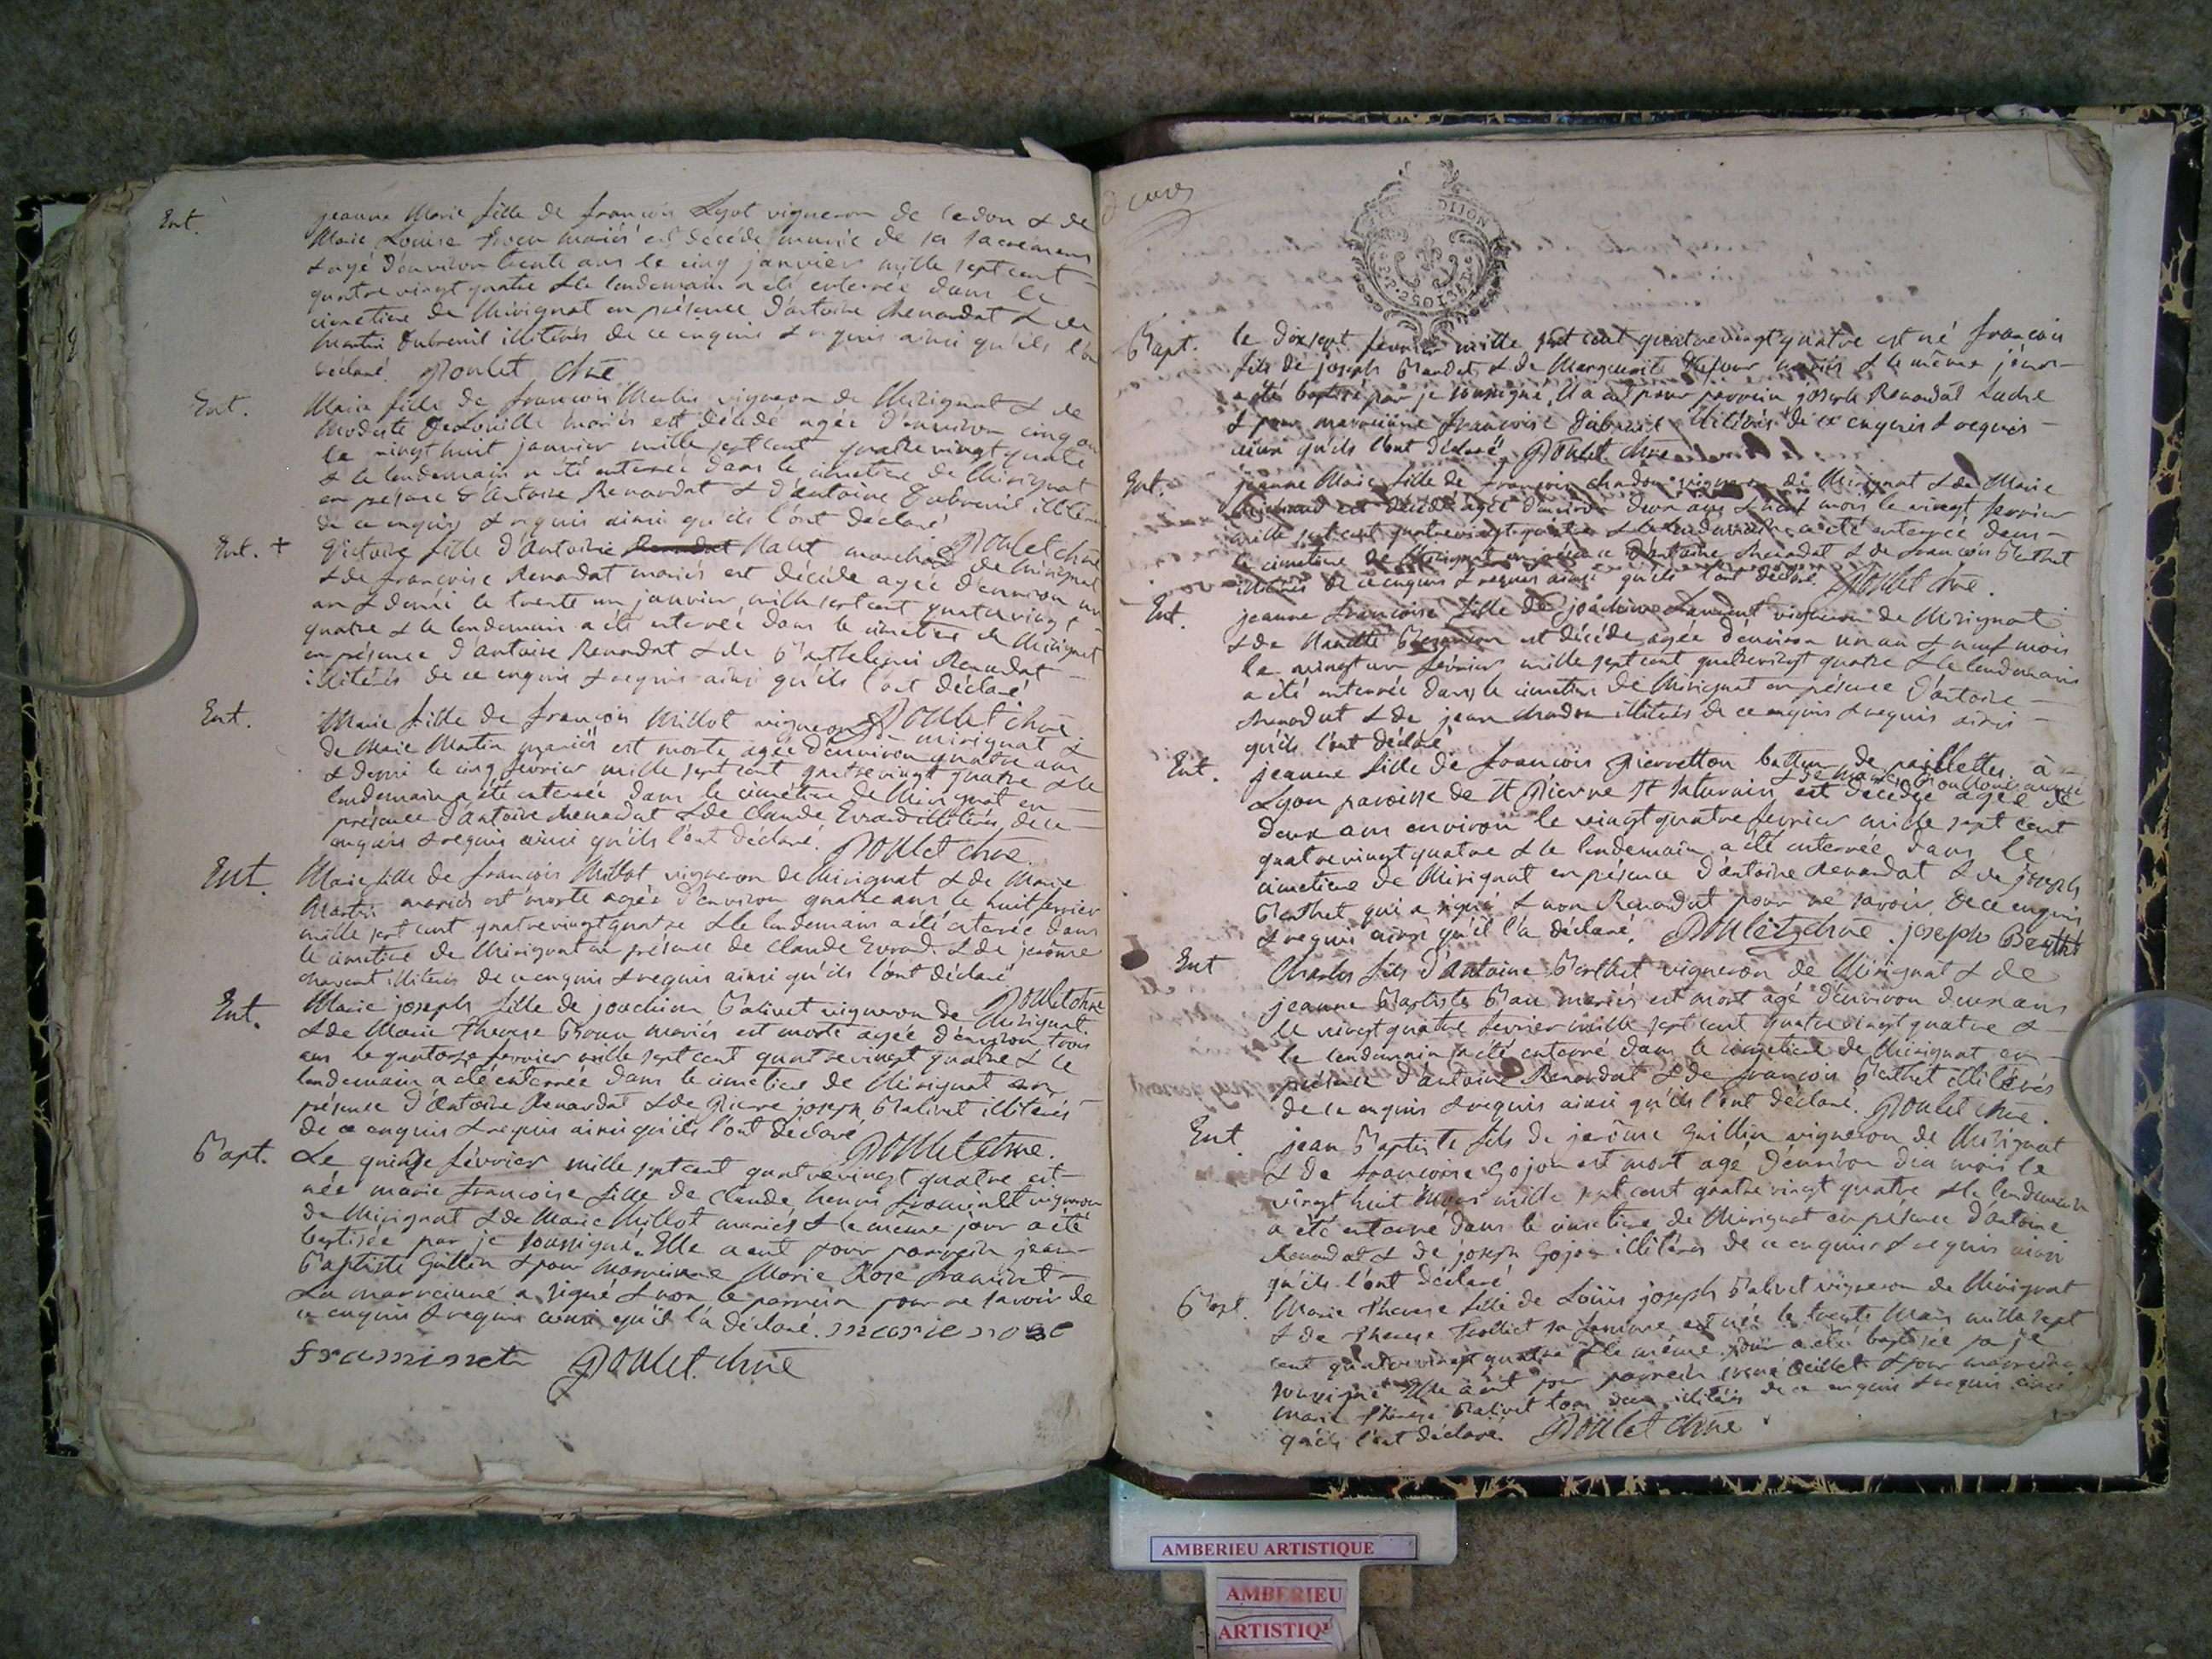 Ent.
jeanne Marie fille de françois Lyot vigneron de cedon & de
Marie Louise mariés est décédé munie de ses sacremens
& agé d'environ trente ans le cinq janvier mille sept cent
quatre vingt quatre & le lendemain a été enterrée dans le
cimetiere de Mérignat en présence d'antoine Renardat & de
martin Dubreuil illitérés de ce enquis & requis ainsi qu'ils l'on
déclaré Poulet Curé
Ent.
Marie fille de françois Merlin vigneron de Mérignat & de
Modeste mariés est décédé agée d'environ cinq ans
le vingt huit janvier mille sept cent quatre vingt quatre
& le lendemain a été enterrée dans le cimetiere de Mérignat
en présence d'Antoine Renardat & d'antoine Dubreuil illitérés
de ce enquis & requis ainsi qu'ils l'ont déclaré
Poulet curé
Ent. +
Victoire fille d'Antoine Renardat marchand de mérignat
& de françoise Renardat mariés est décédé agée d'environ un
an & demi le trente un janvier mille sept cent quatre vingt
quatre & le lendemain a été enterrée dans le cimetiere de Mérignat
en présence d'antoine Renardat & de Barthelemi Renardat
illitérés de ce enquis & requis ainsi qu'ils l'ont déclaré
Poulet curé
Ent.
Marie fille de françois Millot vigneron de mérignat &
de Marie Martin mariés est morte agée d'environ quatre ans
& demi le cinq février mille sept cent quatre vingt quatre & le
lendemain a été enterrée dans le cimétiere de Mérignat en
présence d'antoine Renardat & de Claude Evrard illitérés de ce
enquis & requis ainsi qu'ils l'ont déclaré. Poulet curé.
Ent.
Marie fille de françois Millot vigneron de Mérignat & de Marie
Martin mariés est morte agée d'environ quatre ans le huit fevrier
mille sept cent quatre vingt quatre & le lendemain a été enterrée dans
le cimetiere de Mérignat en présence de Claude Evrard & de jerôme
illitérés de ce enquis & requis ainsi qu'ils l'ont déclaré
Poulet curé
Ent.
Marie joseph fille de joachim Balivet vigneron de Mérignat
& de Marie Therese Roux mariés est morte agée d'environ trois
ans le quatorze fevrier mille sept cent quatre vingt quatre & le
lendemain a été enterrée dans le cimetiere de Mérignat en
présence d'Antoine Renardat & de Pierre joseph Balivet illitérés
de ce enquis & requis ainsi qu'ils l'ont déclaré
Poulet Curé.
Bapt.
Le quinze février mille sept cent quatre vingt quatre est
née marie françoise fille de Claude henri framinet vigneron
de Mérignat & de Marie Millot mariés & le même jour a été
baptisée par je soussigné. Elle a eut pour parrein jean
Baptiste Guillin & pour marreinne Marie Rose framinet
La marreinne a signé & non le parrein pour ne savoir de
ce enquis & requis ainsi qu'il l'a déclaré. marie rose
framineta Poulet. curé
deux
DIJON
Bapt.
le dixsept fevrier mille sept cent quatre vingt quatre est né françois
fils de joseph & de Marguerite Dufour mariés & le même jour
a été baptisé par je soussigné, Il a eut pour parrein joseph Renardat Ladre
& pour marreinne françoise Dubreuil illitérés de ce enquis & requis
ainsi qu'ils l'ont déclaré Poulet curé
Ent.
jeanne Marie fille de françois chadon vigneron de Mérignat & de Marie
est décédé agée d'environ deux ans & neuf mois le vingt fevrier
mille sept cent quatre vingt quatre & le lendemain a été enterrée dans
le cimetiere de Mérignat en présence d'antoine Renardat & de françois Berthet
illitérés de ce enquis & requis ainsi qu'ils l'ont déclaré. Poulet curé.
Ent.
jeanne françoise fille de joachim Laurent vigneron de Mérignat
& de est décédé agée d'environ un an & neuf mois
le vingt un février mille sept cent quatre vingt quatre & le lendemain
a été enterrée dans le cimetiere de Mérignat en présence d'antoine
Renardat & de jean chadon illitérés de ce enquis & requis ainsi
qu'ils l'ont déclaré
Ent.
jeanne fille de françois Pierretton batteur de paillettes à
& de
Lyon paroisse de St Pierre St saturnin est décédée agée de
deux ans environ le vingt quatre fevrier mille sept cent
quatre vingt quatre & le lendemain a été enterrée dans le
cimetiere de Mérignat en présence d'antoine Renardat & de joseph
Berthet qui a signé & non Renardat pour ne savoir de ce enquis
& requis ainsi qu'il l'a déclaré. Poulet curé. joseph Berthet
Ent
Charles fils d'Antoine Berthet vigneron de Mérignat & de
jeanne Baptiste mariés est mort agé d'environ deux ans
le vingt quatre fevrier mille sept cent quatre vingt quatre &
le lendemain a été enterré dans le cimetiere de Mérignat en
présence d'antoine Renardat & de françois Berthet illitérés
de ce enquis & requis ainsi qu'ils l'ont déclaré. Poulet curé.
Ent
jean Baptiste fils de jerôme Guillin vigneron de Mérignat
& de françoise Gojon est mort agé d'environ dix mois le
vingt huit Mars mille sept cent quatre vingt quatre & le lendemain
a été enterré dans le cimetiere de Mérignat en présence d'antoine
Renardat & de joseph Gojon illitérés de ce enquis & requis ainsi
qu'ils l'ont déclaré
Bapt.
Marie Therese fille de Loüis joseph Balivet vigneron de Mérignat
& de Therese sa femme est née le trente Mars mille sept
cent quatre vingt quatre & le même jour a été baptisée par je
soussigné Elle a eut pour parrein & pour marreinne
Marie Therese Balivet tous deux illitérés de ce enquis & requis ainsi
qu'ils l'ont déclaré Poulet curé
AMBERIEU ARTISTIQUE
AMBERIEU
ARTISTIQU